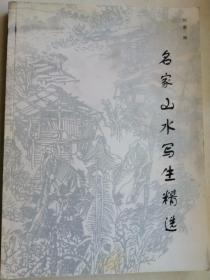 名家山水写生精选